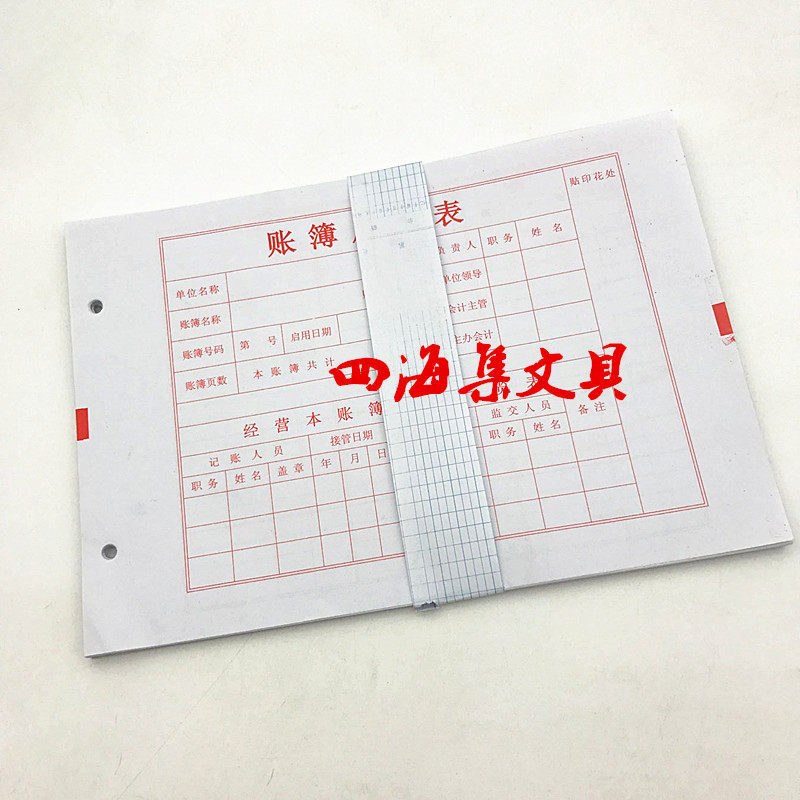 账簿 表
贴印花处
单位名称
负责人 职务 姓名
账簿名称
单位领导
账簿号码 第 号 启用日期
会计主管
账簿页数 本账簿共计
主办会计
四海集文具
经营本账簿 表
记账人员 接管日期 监交人员 备注
职务 姓名 盖章 年 月 日 职务 姓名